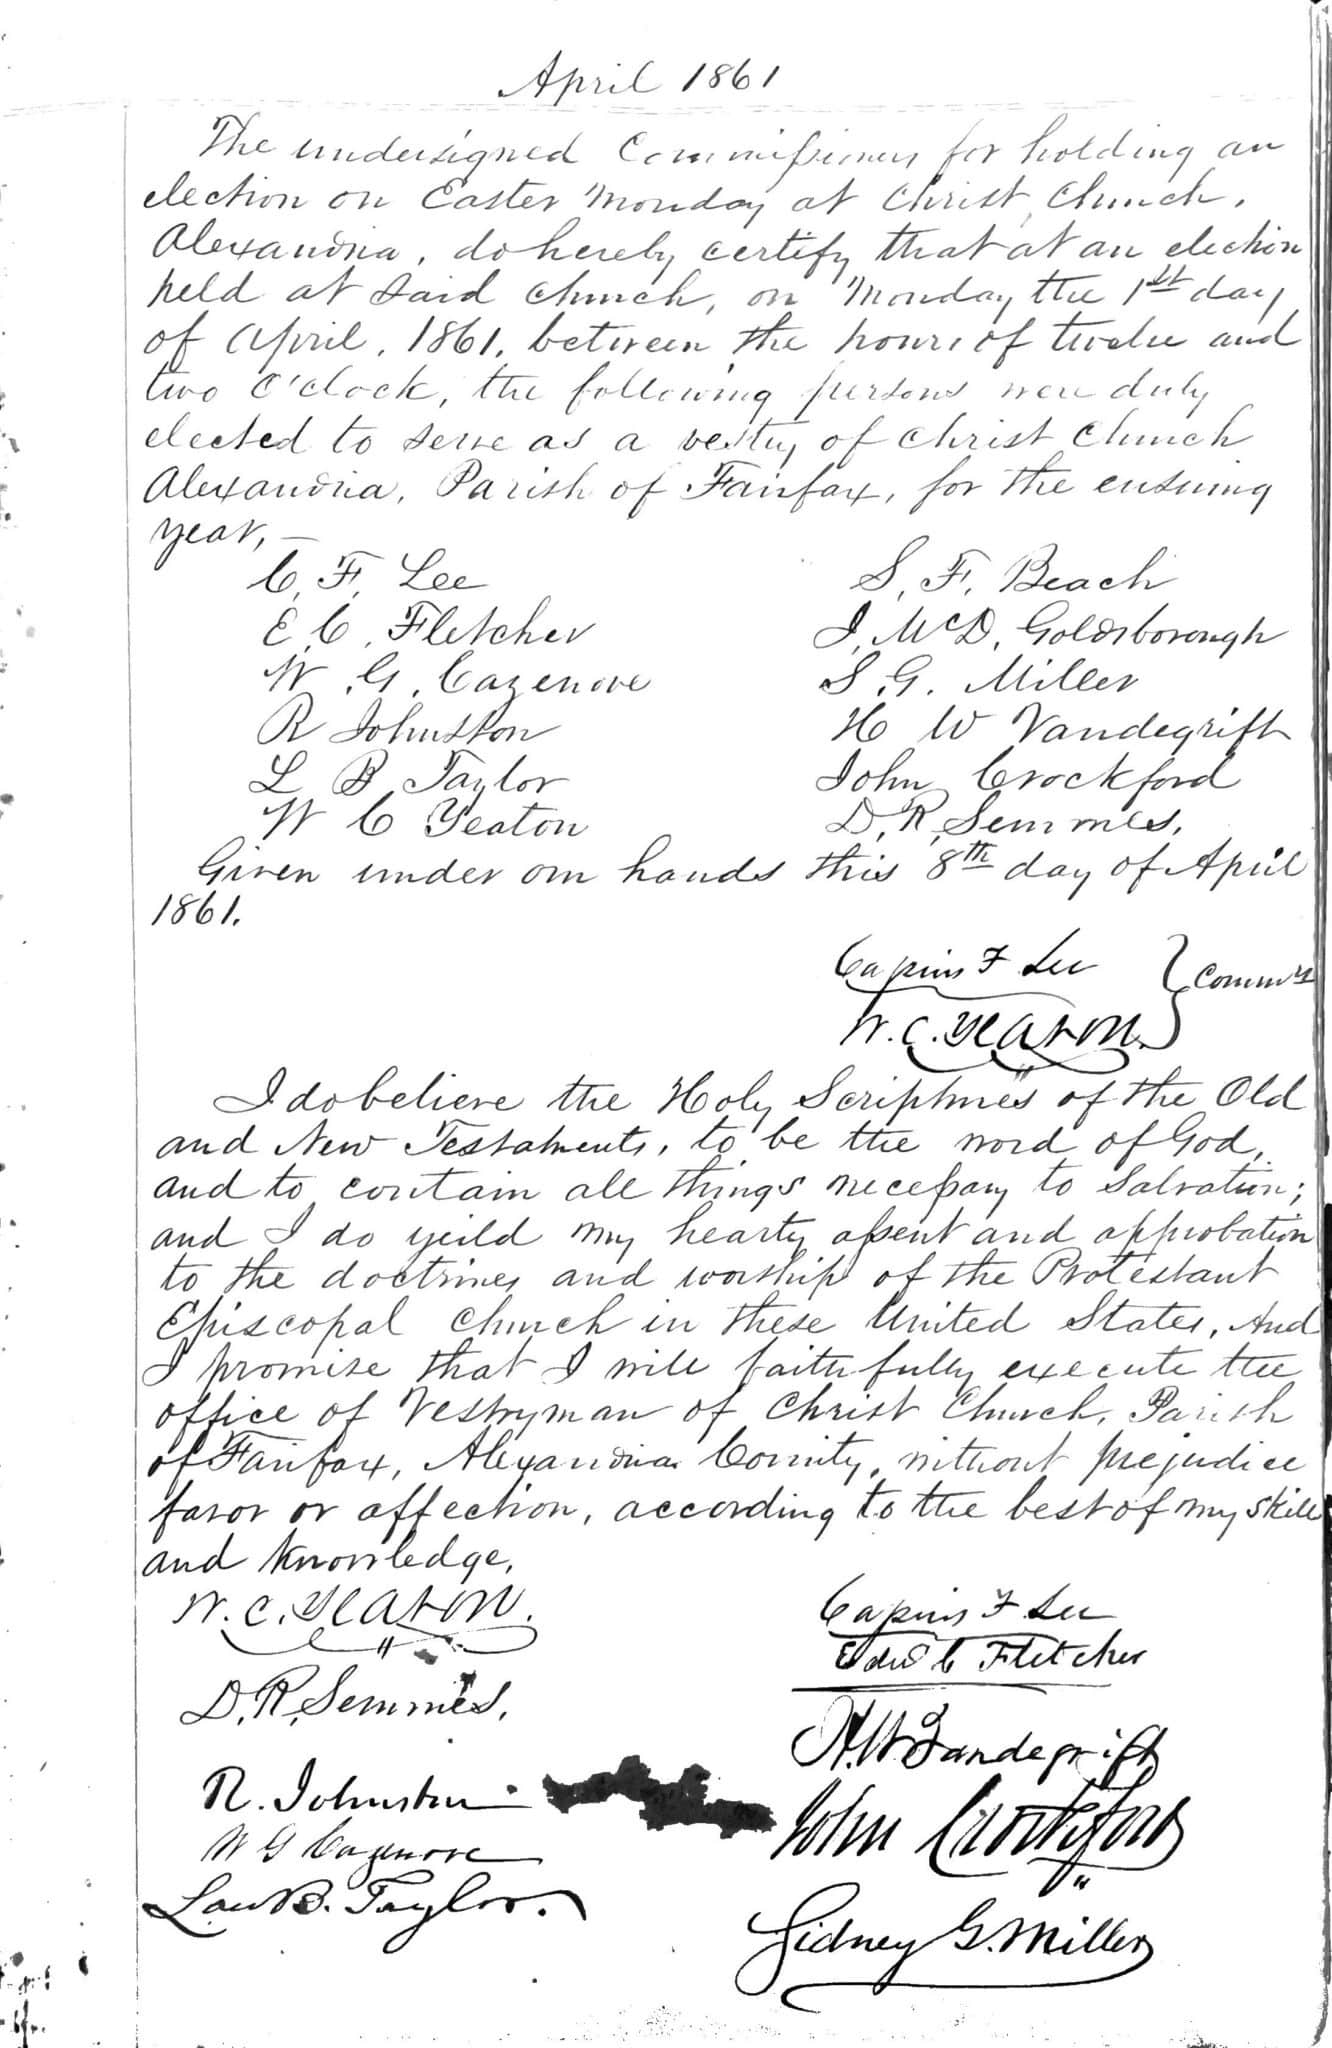 April 1861
The undersigned Commissioners for holding an
election on Easter Monday at Christ Church,
Alexandria, do hereby certify that at an election
held at said Church, on Monday the 1st day
of April, 1861, between the hours of twelve and
two O'clock, the following persons were duly
elected to serve as a vestry of Christ Church
Alexandria, Parish of Fairfax, for the ensuing
year, —
C. F. Lee S. F. Beach
E. C. Fletcher J. McD. Goldsborough
W. G. Cazenove S. G. Miller
R Johnston H W Vandegrift
L B Taylor John Crockford
W C Yeaton D. R. Semmes.
Given under our hands this 8th day of April
1861.
Cassius F Lee } Commrs
W. C. Yeaton
I do believe the Holy Scriptures of the Old
and New Testaments, to be the word of God,
and to contain all things necessary to Salvation;
and I do yeild my hearty assent and approbation
to the doctrines and worship of the Protestant
Episcopal Church in these United States, And
I promise that I will faithfully execute the
office of Vestryman of Christ Church, Parish
of Fairfax, Alexandria County, without prejudice
favor or affection, according to the best of my skill
and knowledge.
W. C. Yeaton. Cassius F. Lee
Edw C Fletcher
D. R. Semmes.
H. W. Vandegrift
R. Johnston John Crockford
W G Cazenove
Law B. Taylor. Sidney G. Miller